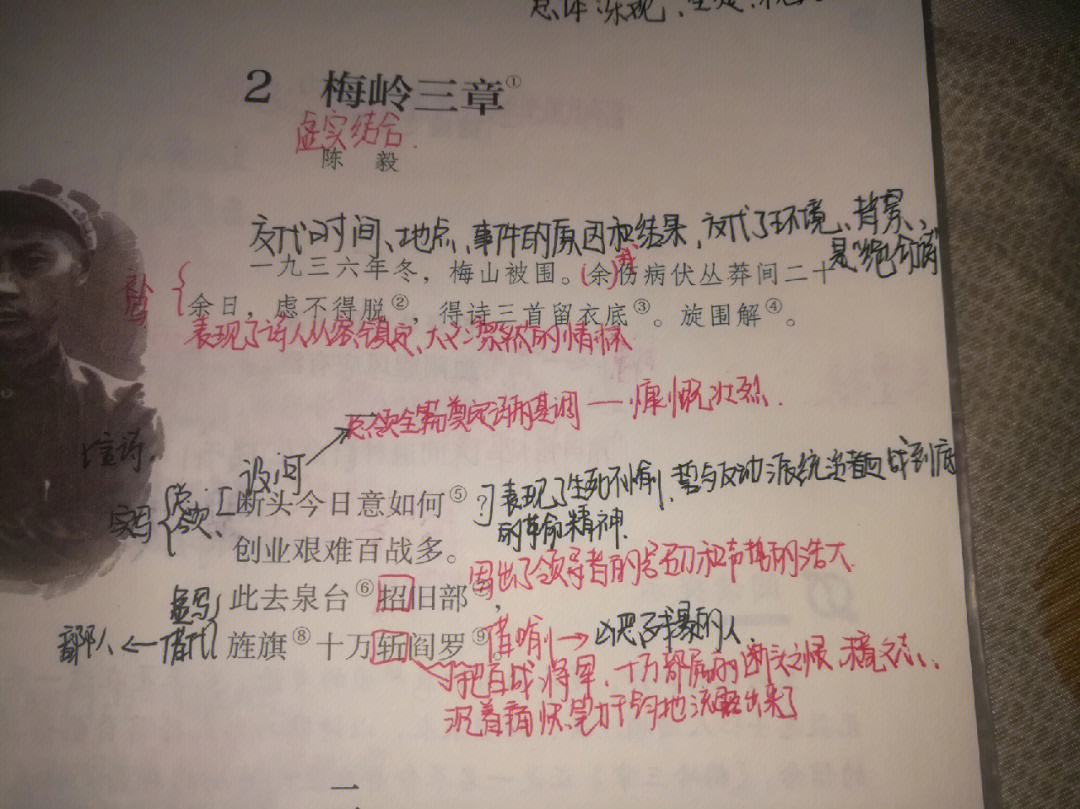 总体:乐观、
2 梅岭三章①
虚实结合.
陈 毅
交代时间、地点、事件的原因和结果,交代了环境、背景、
是"绝句"前
一九三六年冬,梅山被围。(余)我伤病伏丛莽间二十
余日,虑不得脱②,得诗三首留衣底③。旋围解④。
表现了诗人从容镇定、大义凛然的情怀
总领全篇奠定诗的基调——慷慨壮烈.
设问
断头今日意如何⑤?
表现了生死不渝,誓与反动派统治者血战到底
的革命精神.
实写 总领
创业艰难百战多。
写出了领导者的 和声势的浩大
虚写 此去泉台⑥招旧部⑦,
部人←借代 旌旗⑧十万斩阎罗⑨。
借喻→凶恶残暴的人
把百战将军、十万部属的断头之恨、
沉着痛快、笔力千钧地流露出来了
一